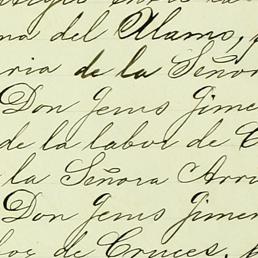 na del Alamo,
ria de la Señor
Don Genis Gimen
de la labor de C
la Señora Arr
Don Genis Gimen
de Cruces,